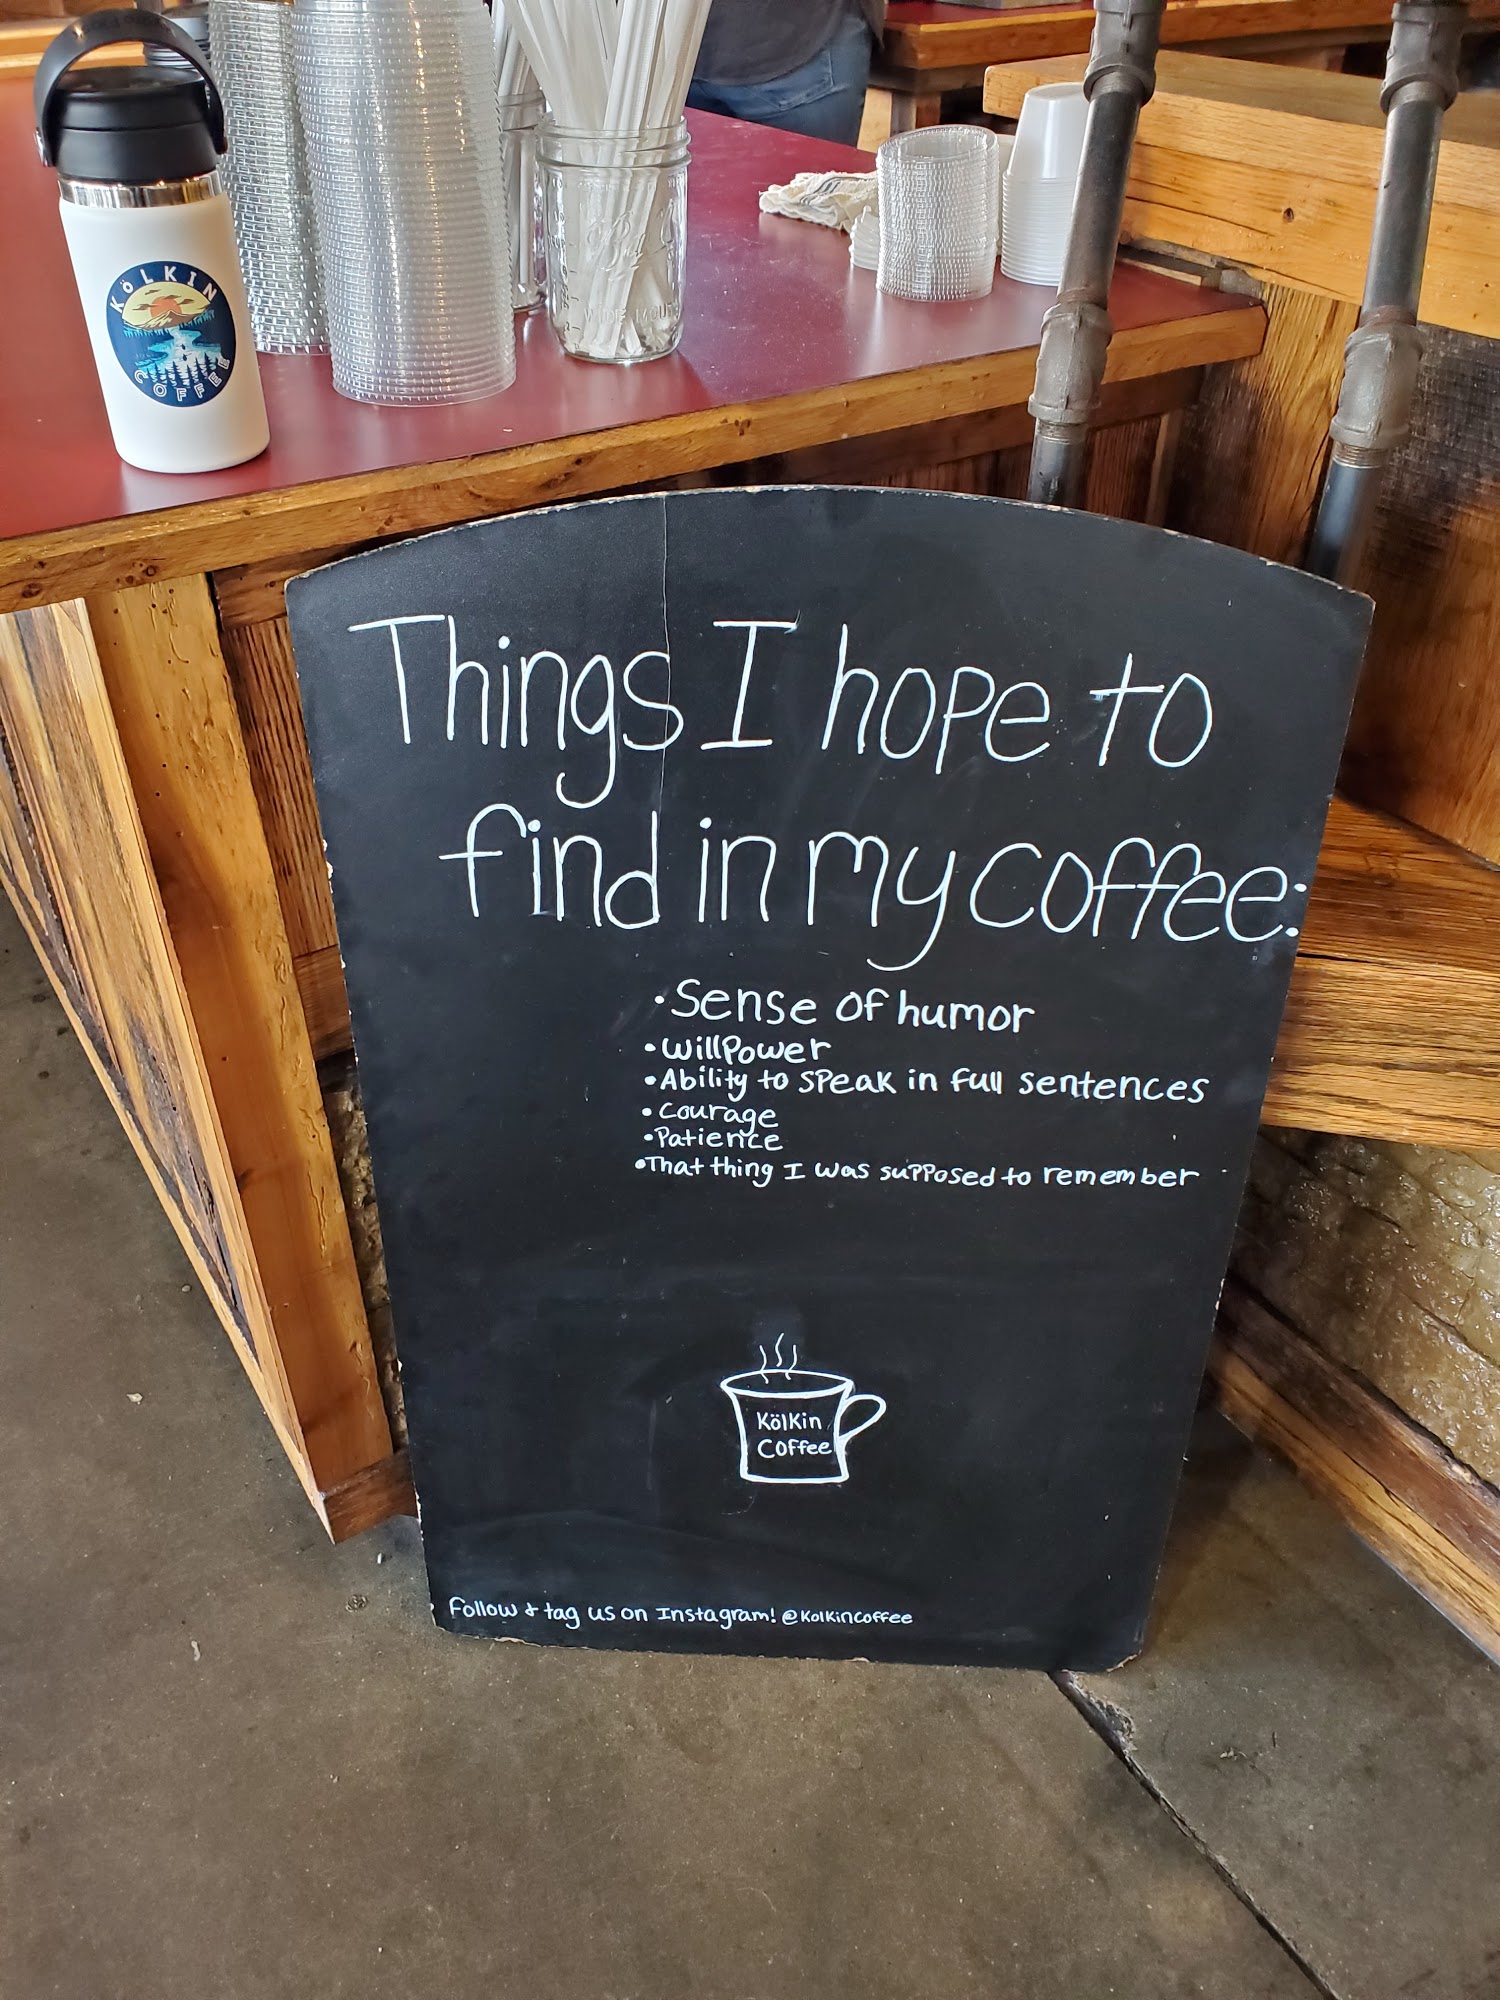 KöLKIN
COFFEE
Ball
WIDE MOUTH
Things I hope to
find in my coffee:
• Sense of humor
• Willpower
• Ability to speak in full sentences
• Courage
• Patience
• That thing I was supposed to remember
Kölkin
Coffee
Follow & tag us on Instagram! @kolkincoffee